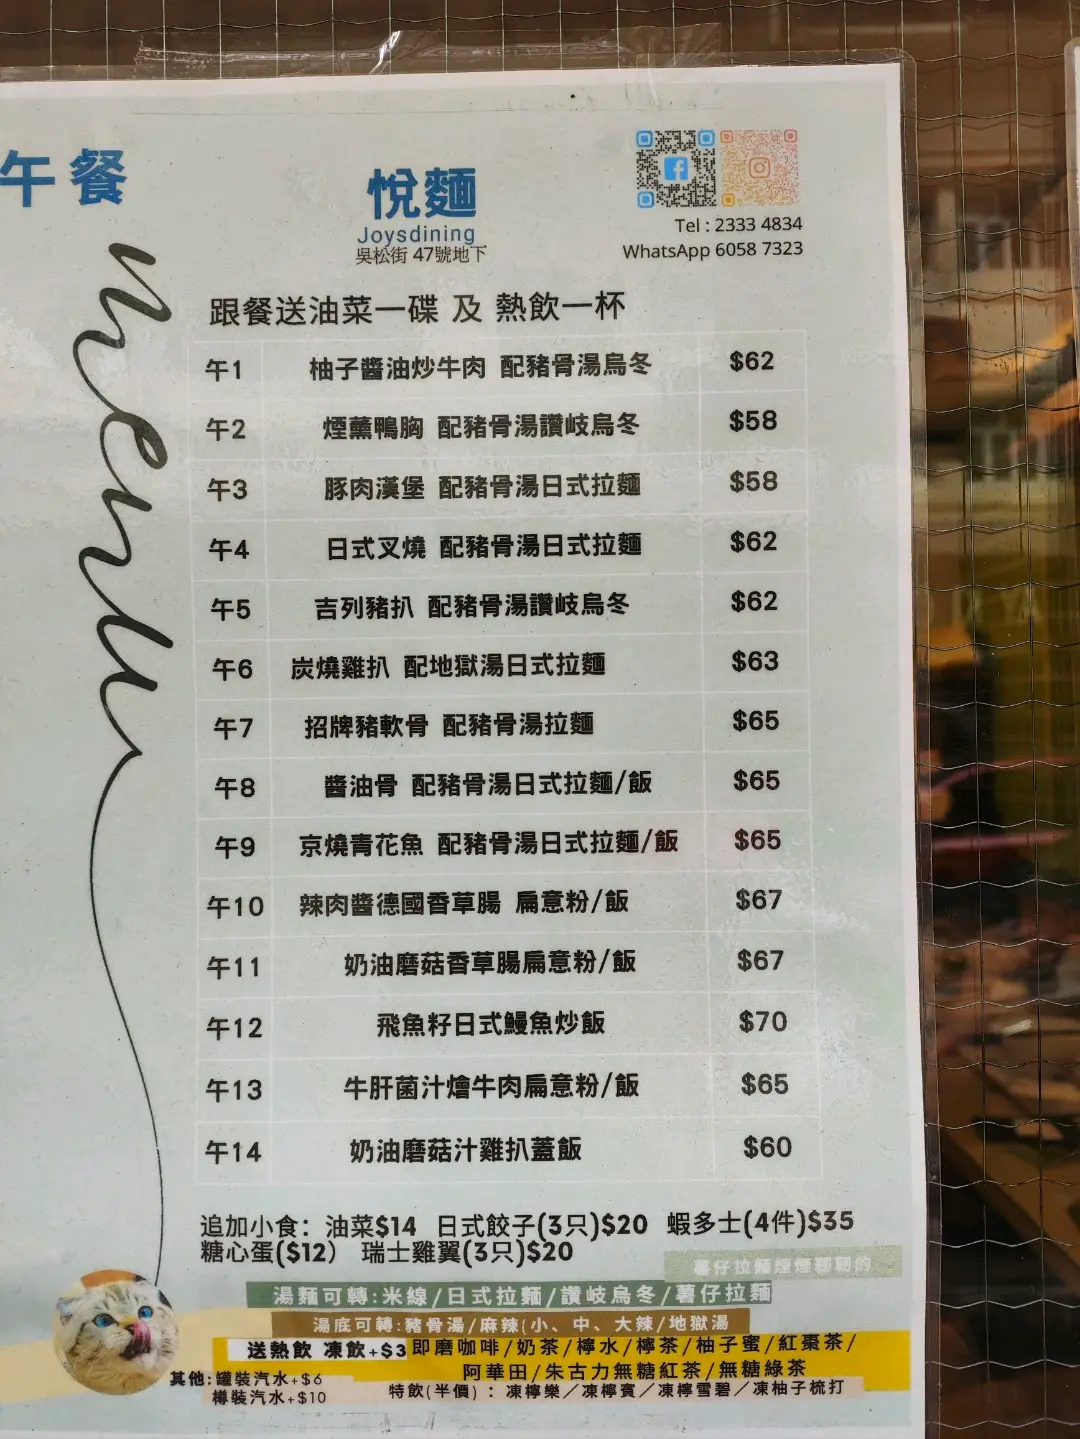 午餐
menu
悅麵
Joysdining
吳松街 47號地下
Tel : 2333 4834
WhatsApp 6058 7323
跟餐送油菜一碟 及 熱飲一杯
午1 柚子醬油炒牛肉 配豬骨湯烏冬 $62
午2 煙薰鴨胸 配豬骨湯讚岐烏冬 $58
午3 豚肉漢堡 配豬骨湯日式拉麵 $58
午4 日式叉燒 配豬骨湯日式拉麵 $62
午5 吉列豬扒 配豬骨湯讚岐烏冬 $62
午6 炭燒雞扒 配地獄湯日式拉麵 $63
午7 招牌豬軟骨 配豬骨湯拉麵 $65
午8 醬油骨 配豬骨湯日式拉麵/飯 $65
午9 京燒青花魚 配豬骨湯日式拉麵/飯 $65
午10 辣肉醬德國香草腸 扁意粉/飯 $67
午11 奶油磨菇香草腸扁意粉/飯 $67
午12 飛魚籽日式鰻魚炒飯 $70
午13 牛肝菌汁燴牛肉扁意粉/飯 $65
午14 奶油磨菇汁雞扒蓋飯 $60
追加小食：油菜$14 日式餃子(3只)$20 蝦多士(4件)$35
糖心蛋($12） 瑞士雞翼(3只)$20
薯仔拉麵煙煙韌韌的
湯麵可轉:米線/日式拉麵/讚岐烏冬/薯仔拉麵
湯底可轉:豬骨湯/麻辣(小、中、大辣/地獄湯
送熱飲 凍飲+$3 即磨咖啡/奶茶/檸水/檸茶/柚子蜜/紅棗茶/
阿華田/朱古力無糖紅茶/無糖綠茶
其他:罐裝汽水+$6
樽裝汽水+$10
特飲(半價)：凍檸樂／凍檸賓／凍檸雪碧／凍柚子梳打